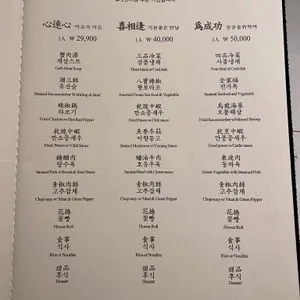 心連心 마음과 마음
1人 ₩ 29,900
蟹肉湯
게살스프
Crab Meat Soup
溜三絲
유산슬
辣椒鷄
라조기
Fried Chicken w/Hot Red Pepper
乾燒中蝦
깐쇼중새우
Fried Prawn w/Chili Sauce
糖醋肉
탕수육
Steamed Pork w/Sweet & Sour Sauce
青椒肉絲
고추잡채
Chop suey w/Meat & Green Pepper
花捲
꽃빵
Flower Roll
食事
식사
Rice or Noodles
甜品
후식
Dessert
喜相逢 기분좋은 만남
1人 ₩ 40,000
三品冷菜
삼품냉채
Three kinds of Cold dish
八寶辣椒
팔보라조
乾燒中蝦
깐쇼중새우
Fried Prawn w/Chili Sauce
魚香冬茹
어향동고
蠔油牛肉
호유우육
Sauteed Beef with Oyster sauce
青椒肉絲
고추잡채
Chop suey w/Meat & Green Pepper
花捲
꽃빵
Flower Roll
食事
식사
Rice or Noodles
甜品
후식
Dessert
爲成功 성공을위하여
1人 ₩ 50,000
四品冷菜
사품냉채
Four kinds of Cold dish
全家福
전가복
Steamed Seafood and Vegetable
烏龍海蔘
오룡해삼
乾烹中蝦
깐풍중새우
Fried prawn w/Garlic sauce
東坡肉
동파육
Green Vegetable with Steamed Pork
青椒肉絲
고추잡채
Chop suey w/Meat & Green Pepper
花捲
꽃빵
Flower Roll
食事
식사
Rice or Noodles
甜品
후식
Dessert